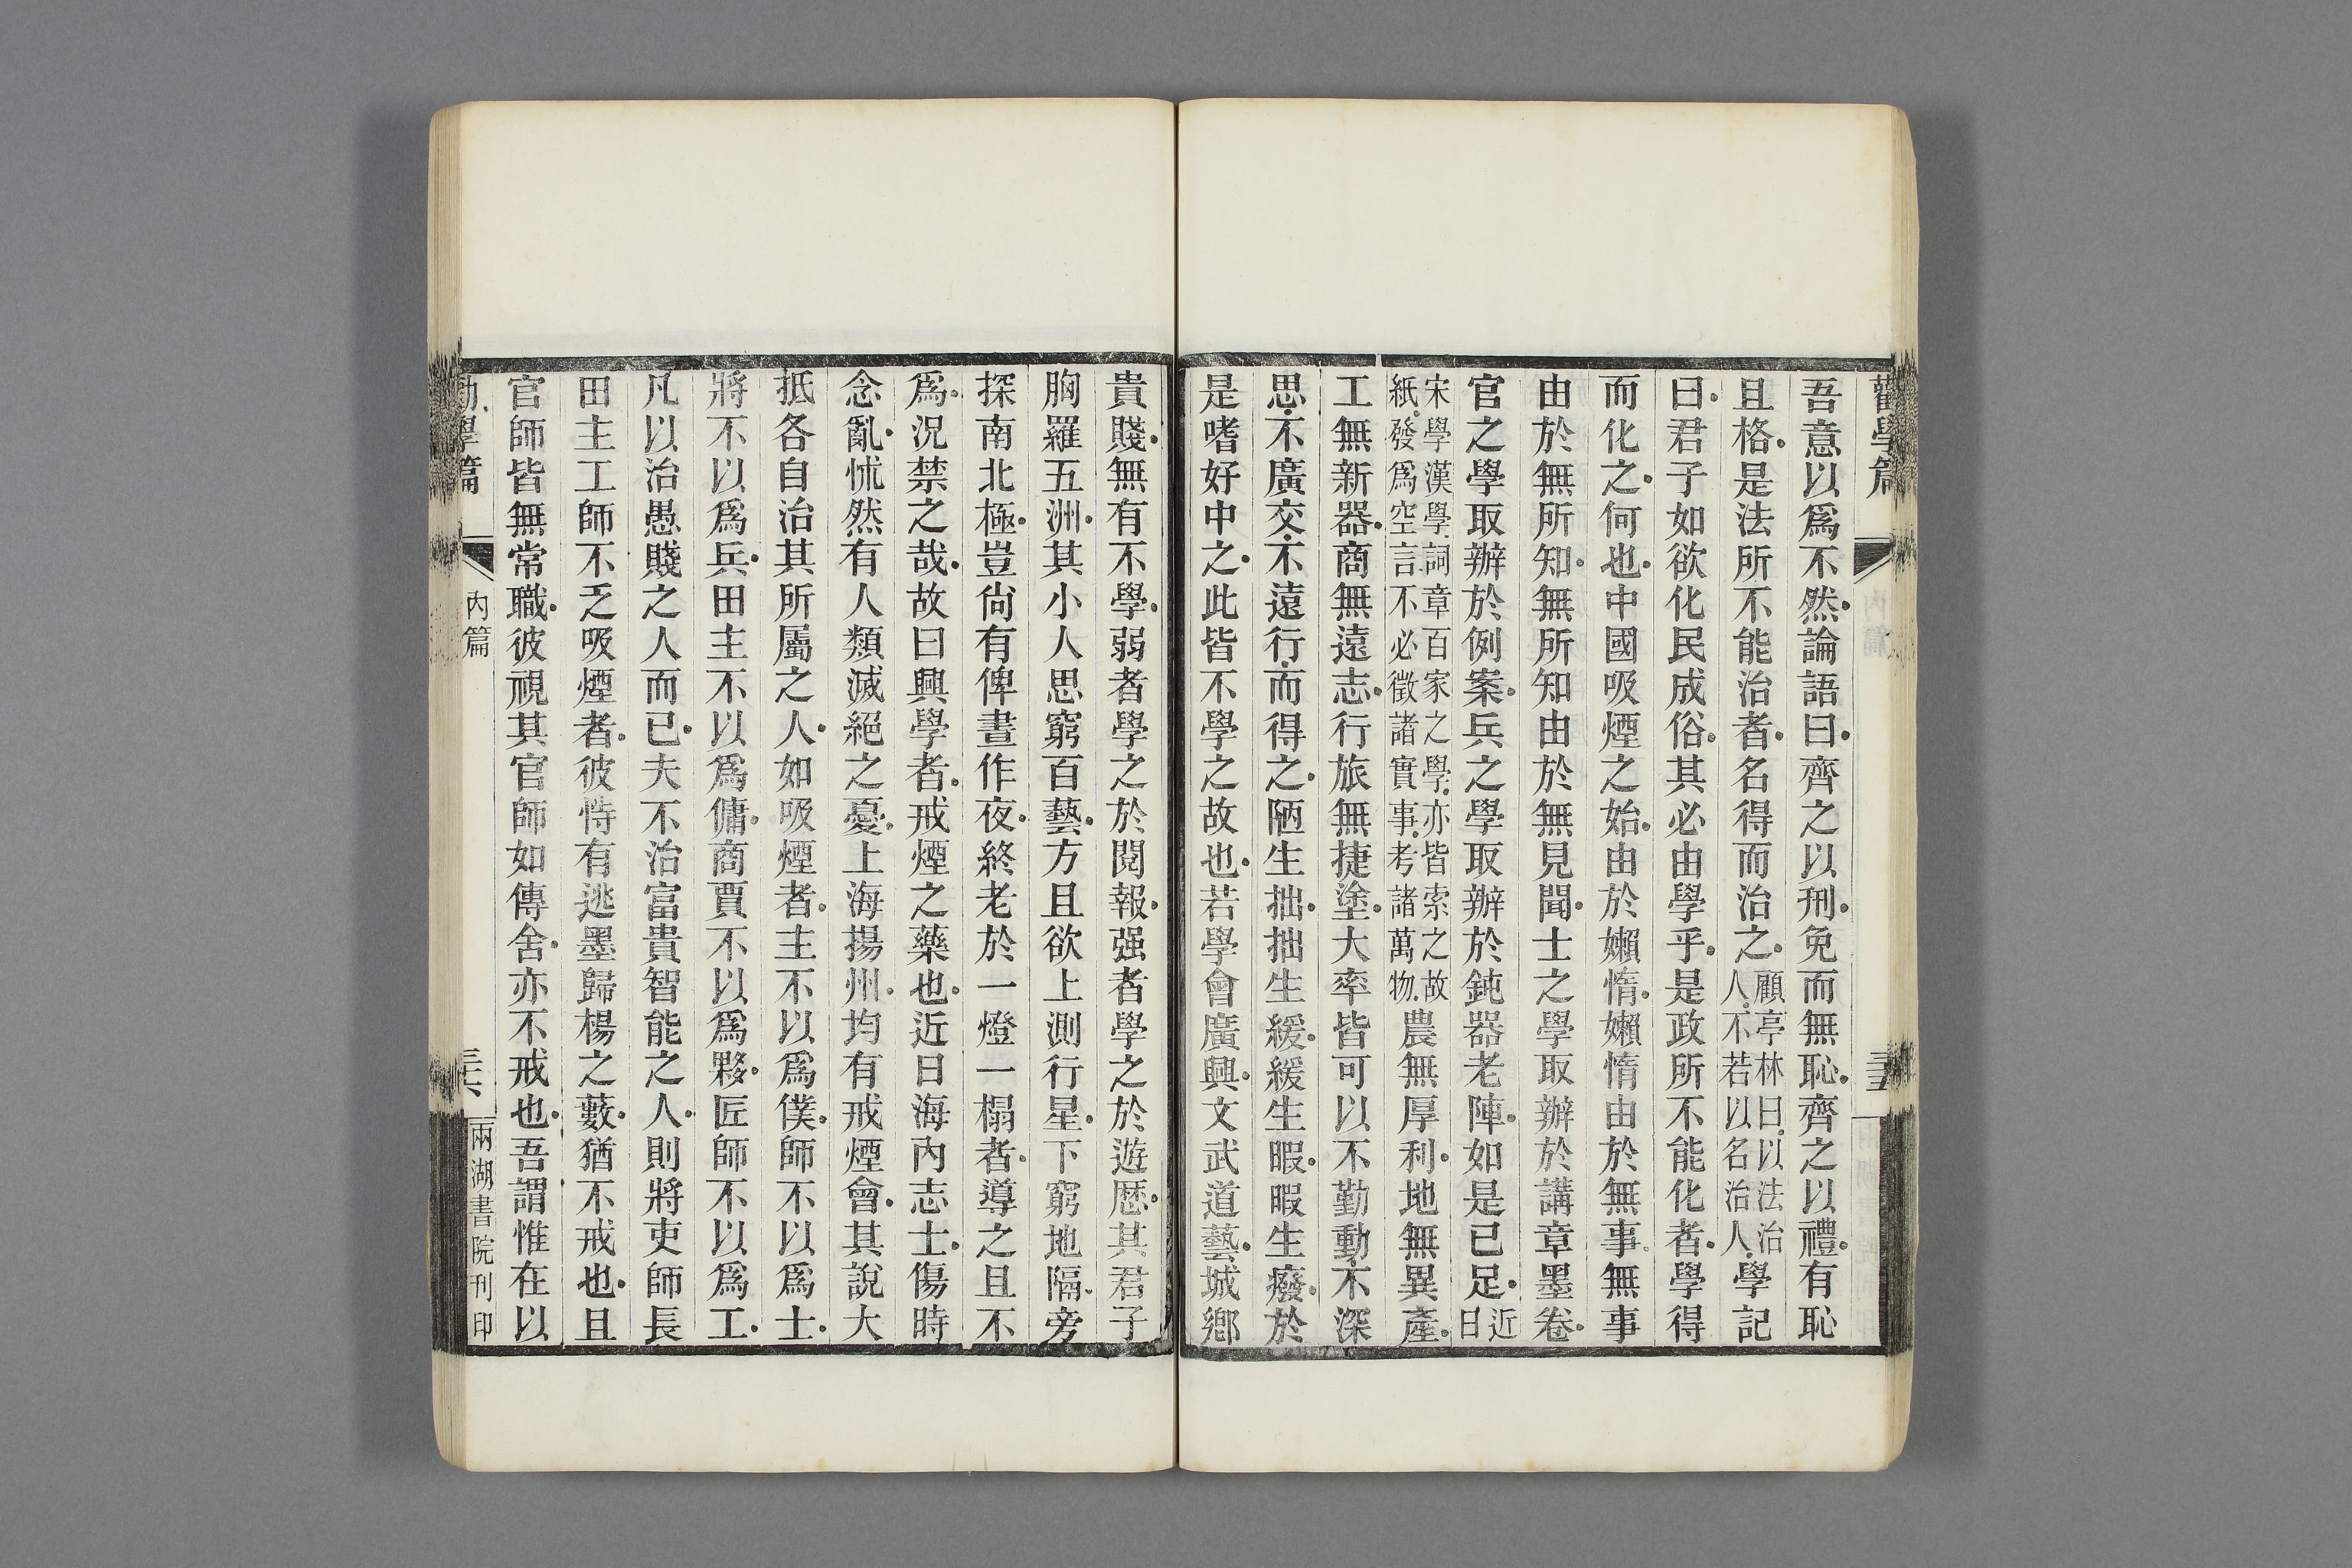 勸學篇
吾意以爲不然論語曰齊之以刑免而無恥齊之以禮有恥
且格是法所不能治者名得而治之顧亭林曰以法治人不若以名治人學記
曰君子如欲化民成俗其必由學乎是政所不能化者學得
而化之何也中國吸煙之始由於嬾惰嬾惰由於無事無事
由於無所知無所知由於無見聞士之學取辦於講章墨卷
官之學取辦於例案兵之學取辦於鈍器老陣如是已足近日
宋學漢學詞章百家之學亦皆索之故紙發爲空言不必徵諸實事考諸萬物農無厚利地無異產
工無新器商無遠志行旅無捷塗大率皆可以不勤動不深
思不廣交不遠行而得之陋生拙拙生緩緩生暇暇生癈於
是嗜好中之此皆不學之故也若學會廣興文武道藝城鄉
貴賤無有不學弱者學之於閱報强者學之於遊歷其君子
胸羅五洲其小人思窮百藝方且欲上測行星下窮地隔旁
探南北極豈尙有俾晝作夜終老於一燈一榻者導之且不
爲況禁之哉故曰興學者戒煙之藥也近日海內志士傷時
念亂怵然有人類滅絕之憂上海揚州均有戒煙會其說大
抵各自治其所屬之人如吸煙者主不以爲僕師不以爲士
將不以爲兵田主不以爲傭商賈不以爲夥匠師不以爲工
凡以治愚賤之人而已夫不治富貴智能之人則將吏師長
田主工師不乏吸煙者彼恃有逃墨歸楊之藪猶不戒也且
官師皆無常職彼視其官師如傳舍亦不戒也吾謂惟在以
勸學篇
內篇
三六
兩湖書院刊印